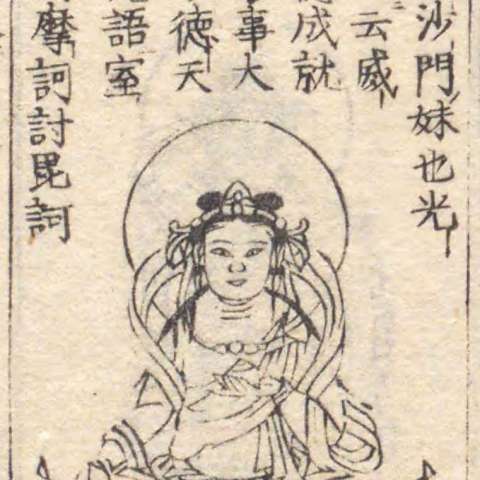 沙門妹也光
云威
成就
事大
德天
語室
摩訶討毘訶